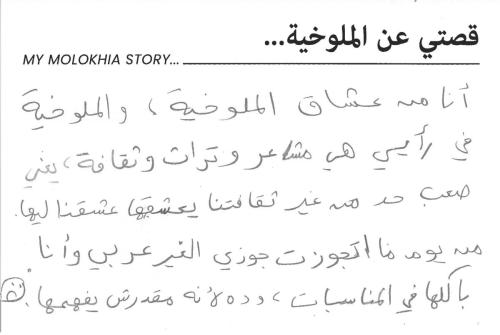 قصتي عن الملوخية...
MY MOLOKHIA STORY...
أنا من عشاق الملوخية، والملوخية
في رأيي هي مشاعر وتراث وثقافة، يعني
صعب حد من غير ثقافتنا يعشقها عشقنا ليها.
من يوم ما اتجوزت جوزي الغير عربي وأنا
بآكلها في المناسبات، وده لأنه مقدرش يفهمها.